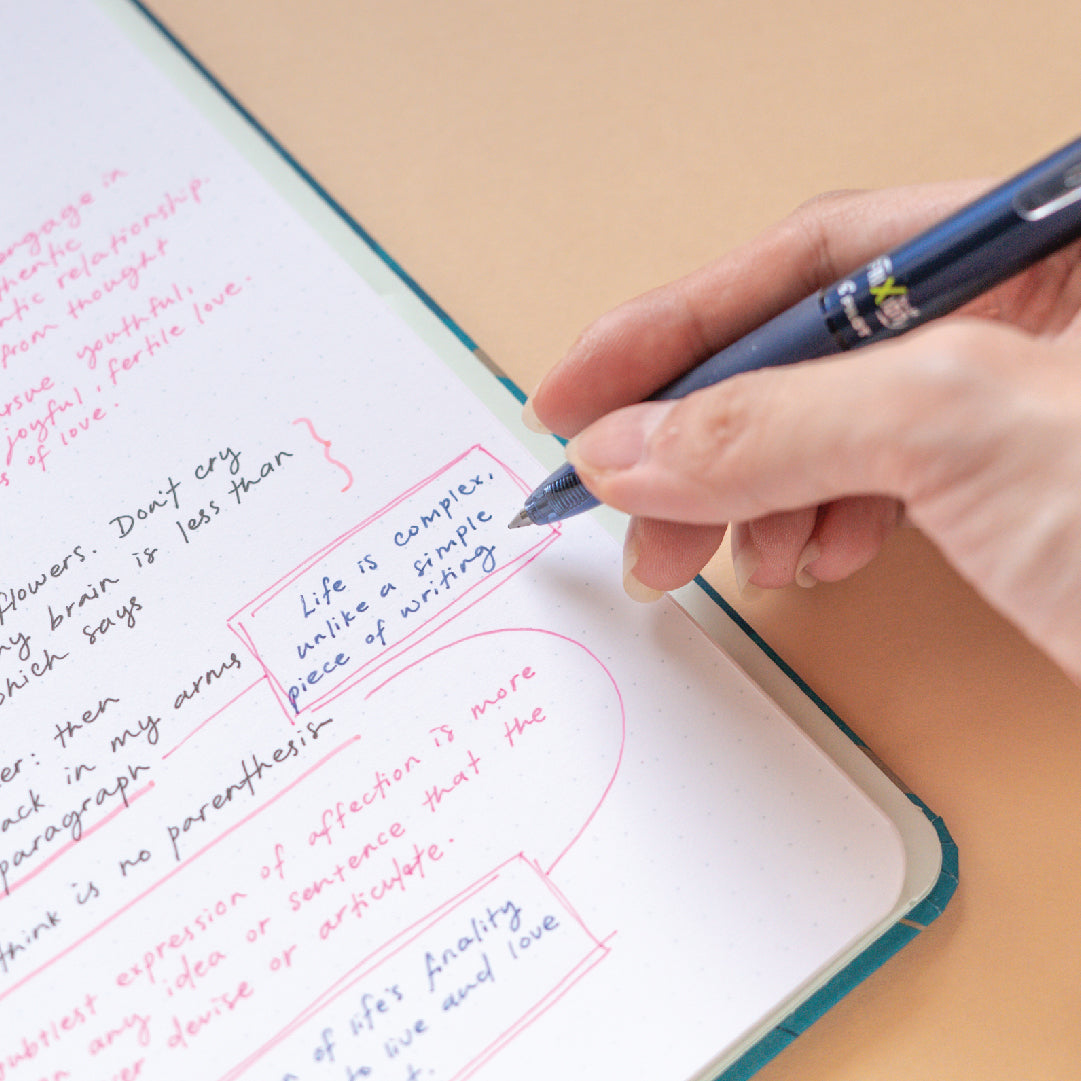 engage in
thentic
ntic relationship.
from thought
rsue youthful,
joyful, fertile love.
s of love.
flowers. Don't cry
my brain is less than
which says
er: then
ack in my arms
paragraph
think is no parenthesis
Life is complex,
unlike a simple
piece of writing
ubtlest expression of affection is more
n any idea or sentence that the
er devise or articulate.
of life's finality
to live and love
PILOT